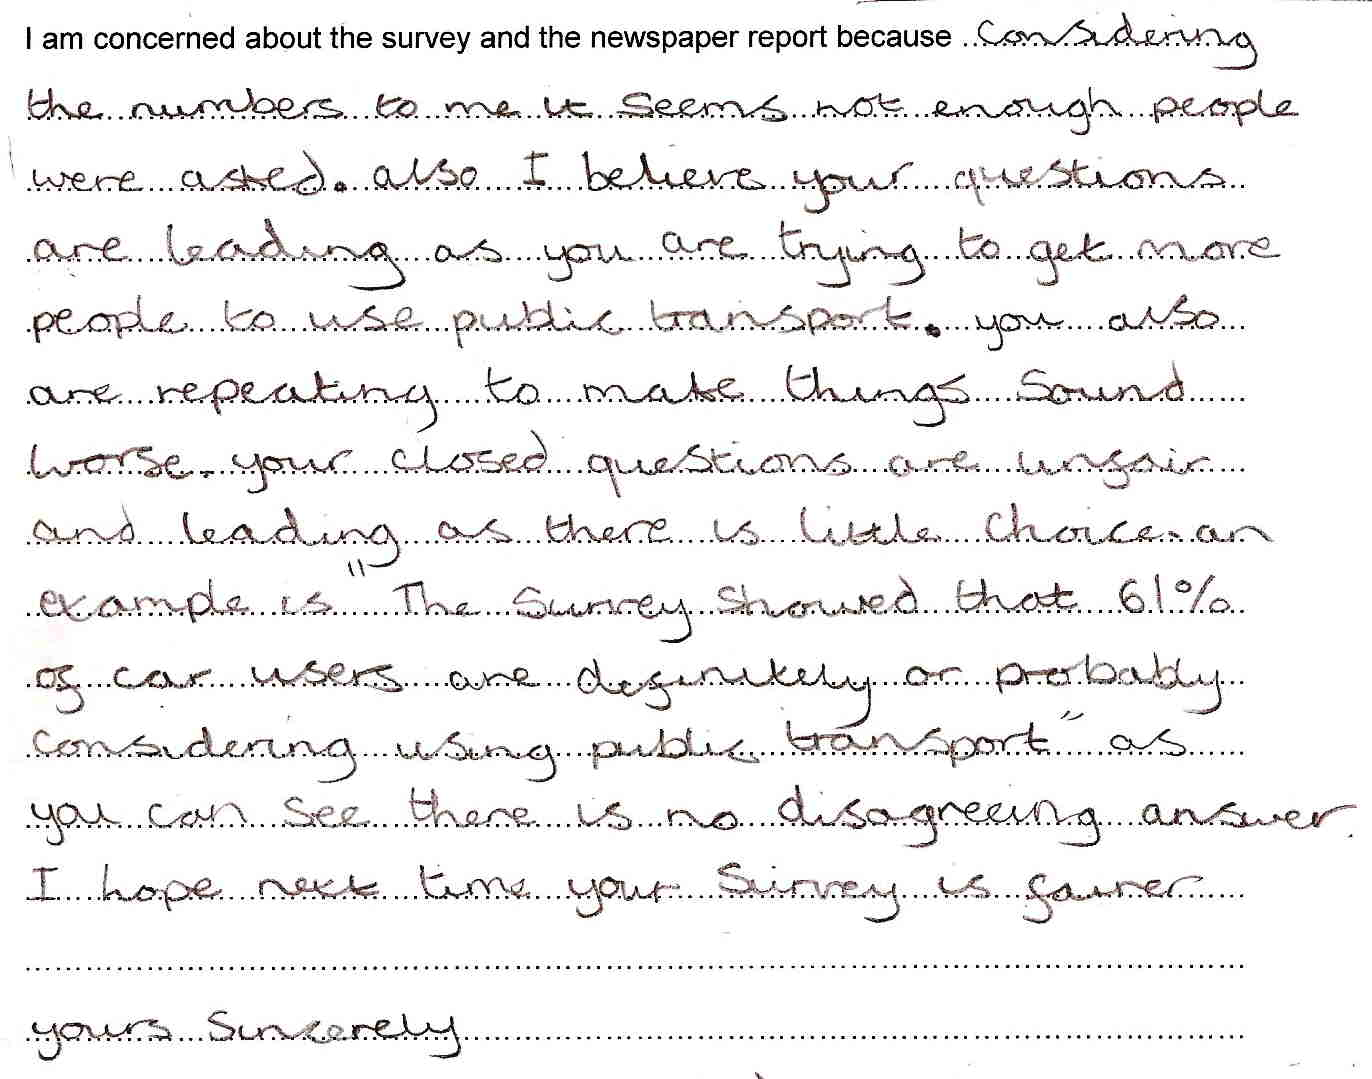 I am concerned about the survey and the newspaper report because considering
the numbers to me it seems not enough people
were asked. also I believe your questions
are leading as you are trying to get more
people to use public transport. you also
are repeating to make things sound
worse. your closed questions are unfair
and leading as there is little choice. an
example is "The survey showed that 61%
of car users are definitely or probably
considering using public transport" as
you can see there is no disagreeing answer.
I hope next time your survey is fairer
yours sincerely